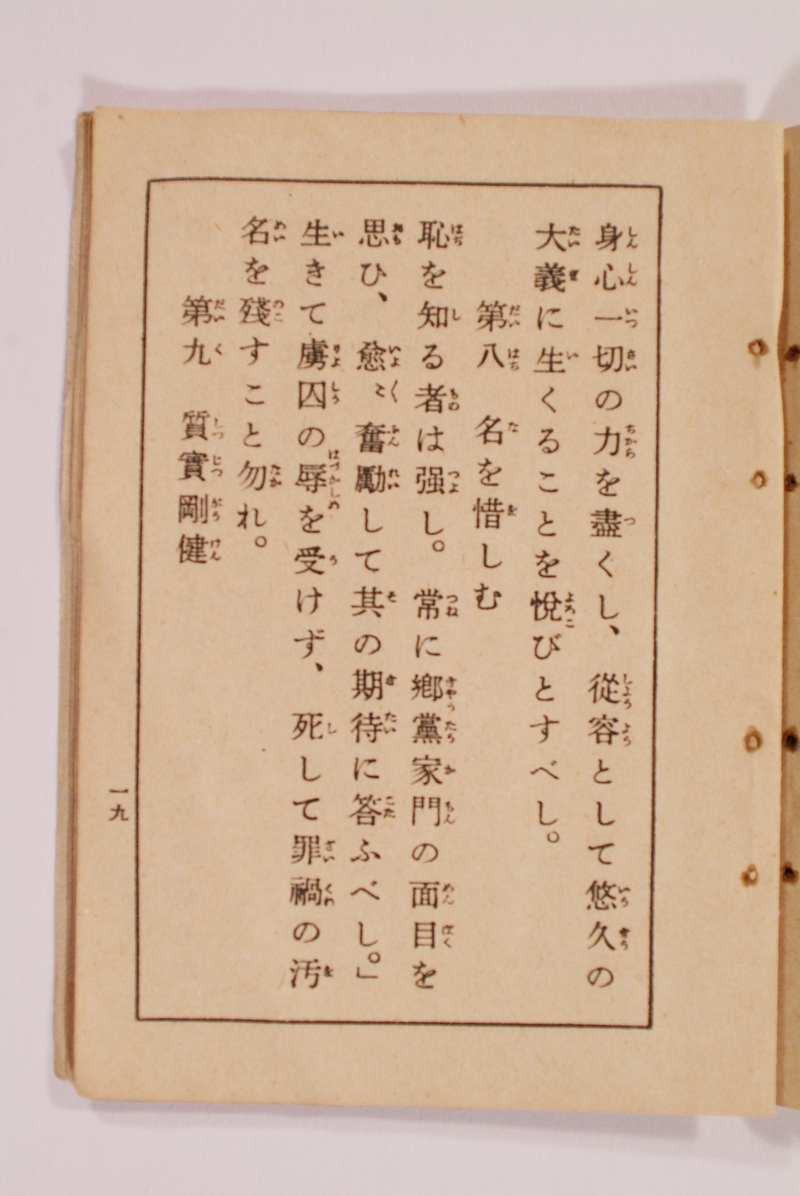 身心一切の力を盡くし、從容として悠久の
大義に生くることを悅びとすべし。
第八　名を惜しむ
恥を知る者は强し。常に鄕黨家門の面目を
思ひ、愈〻奮勵して其の期待に答ふべし。」
生きて虜囚の辱を受けず、死して罪禍の汚
名を殘すこと勿れ。
第九　質實剛健
一九